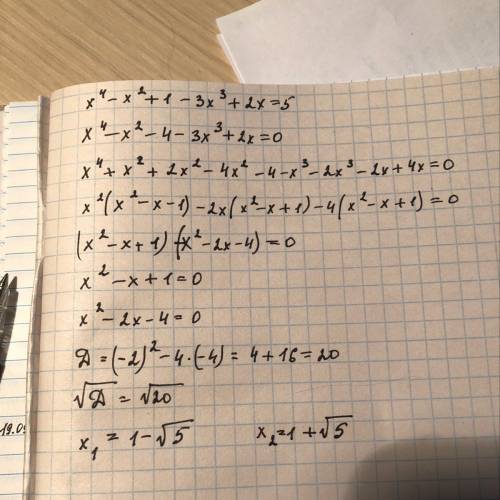 x⁴ - x² + 1 - 3x³ + 2x = 5
x⁴ - x² - 4 - 3x³ + 2x = 0
x⁴ + x² + 2x² - 4x² - 4 - x³ - 2x³ - 2x + 4x = 0
x²(x² - x - 1) - 2x(x² - x + 1) - 4(x² - x + 1) = 0
(x² - x + 1) (x² - 2x - 4) = 0
x² - x + 1 = 0
x² - 2x - 4 = 0
Д = (-2)² - 4·(-4) = 4 + 16 = 20
√Д = √20
x₁ = 1 - √5 x₂ = 1 + √5